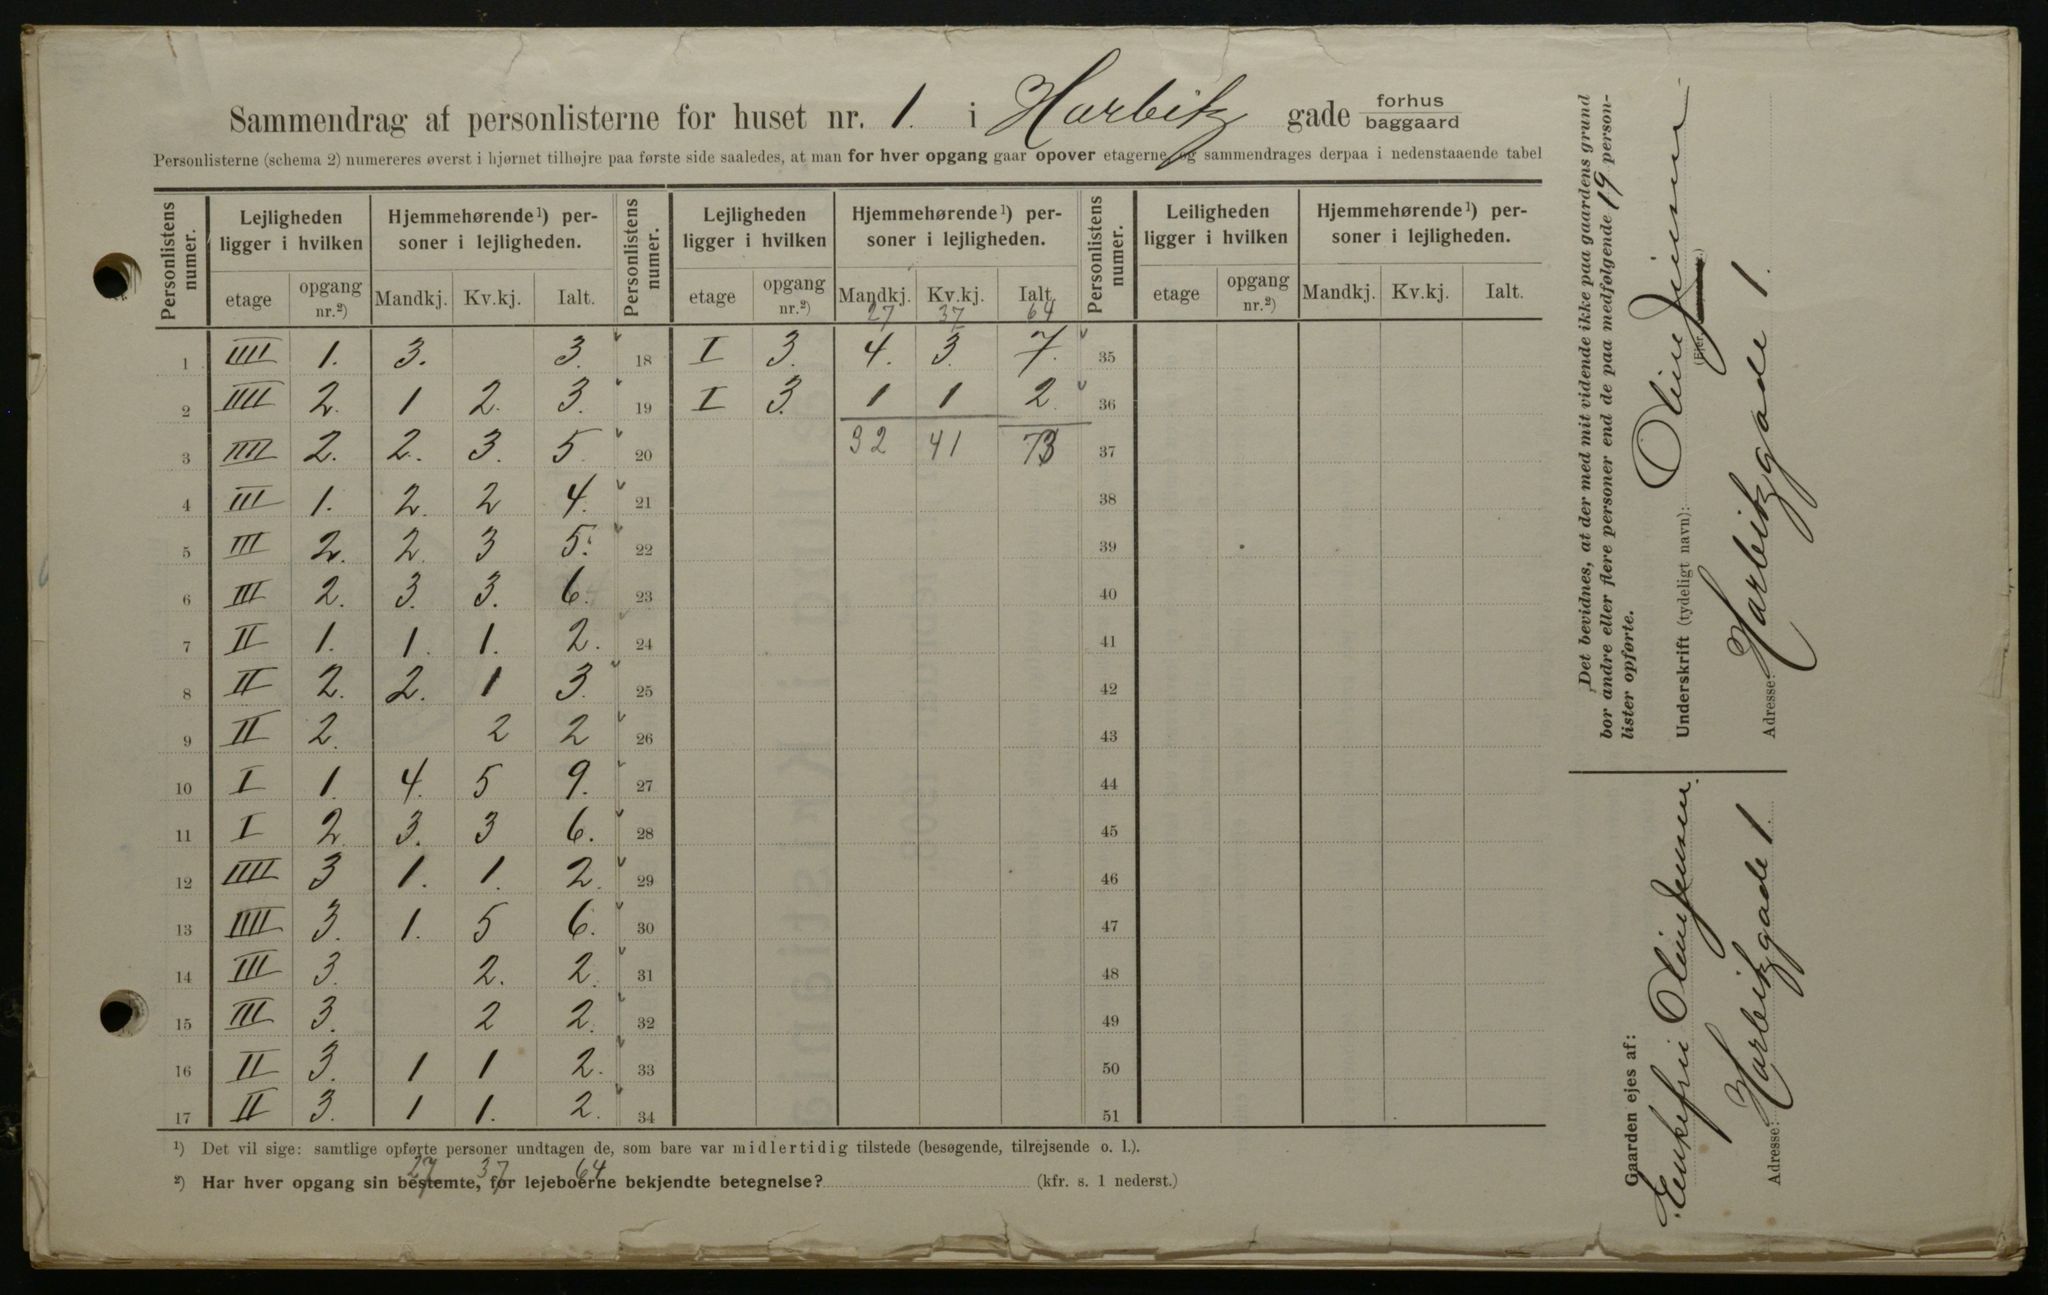 Sammendrag af personlisterne for huset nr. 1. i Harbitz gade forhus baggaard
Personlisterne (schema 2) numereres øverst i hjørnet tilhøjre paa første side saaledes, at man for hver opgang gaar opover etagerne og sammendrages derpaa i nedenstaaende tabel
Personlistens numer. Lejligheden ligger i hvilken Hjemmehørende¹) personer i lejligheden. Personlistens numer. Lejligheden ligger i hvilken Hjemmehørende¹) personer i lejligheden. Personlistens numer. Leiligheden ligger i hvilken Hjemmehørende¹) personer i lejligheden.
etage opgang nr.²) Mandkj. Kv.kj. Ialt. etage opgang nr.²) Mandkj. Kv.kj. Ialt. etage opgang nr.²) Mandkj. Kv.kj. Ialt.
27 37 64
1 IIII 1. 3. 3. 18 I 3. 4. 3. 7. 35
2 IIII 2. 1 2. 3. 19 I 3. 1 1 2. 36
3 IIII 2. 2. 3. 5. 20 32 41 73 37
4 III 1. 2. 2 4. 21 38
5 III 2. 2. 3 5. 22 39
6 III 2. 3. 3. 6. 23 40
7 II 1. 1. 1. 2. 24 41
8 II 2. 2. 1 3. 25 42
9 II 2. 2 2 26 43
10 I 1. 4. 5 9. 27 44
11 I 2. 3. 3 6. 28 45
12 IIII 3 1. 1. 2. 29 46
13 IIII 3. 1. 5 6. 30 47
14 III 3. 2. 2. 31 48
15 III 3. 2 2. 32 49
16 II 3. 1 1 2. 33 50
17 II 3. 1 1. 2. 34 51
¹) Det vil sige: samtlige opførte personer undtagen de, som bare var midlertidig tilstede (besøgende, tilrejsende o. l.).
27 37 64
²) Har hver opgang sin bestemte, for lejeboerne bekjendte betegnelse? (kfr. s. 1 nederst.)
Det bevidnes, at der med mit vidende ikke paa gaardens grund
bor andre eller flere personer end de paa medfølgende 19 person-
lister opførte.
Underskrift (tydeligt navn): Oline Jensen.
(Ejer
Adresse: Harbitzgade 1.
Gaarden ejes af:
Enkefru Oline Jensen.
Adresse: Harbitzgade 1